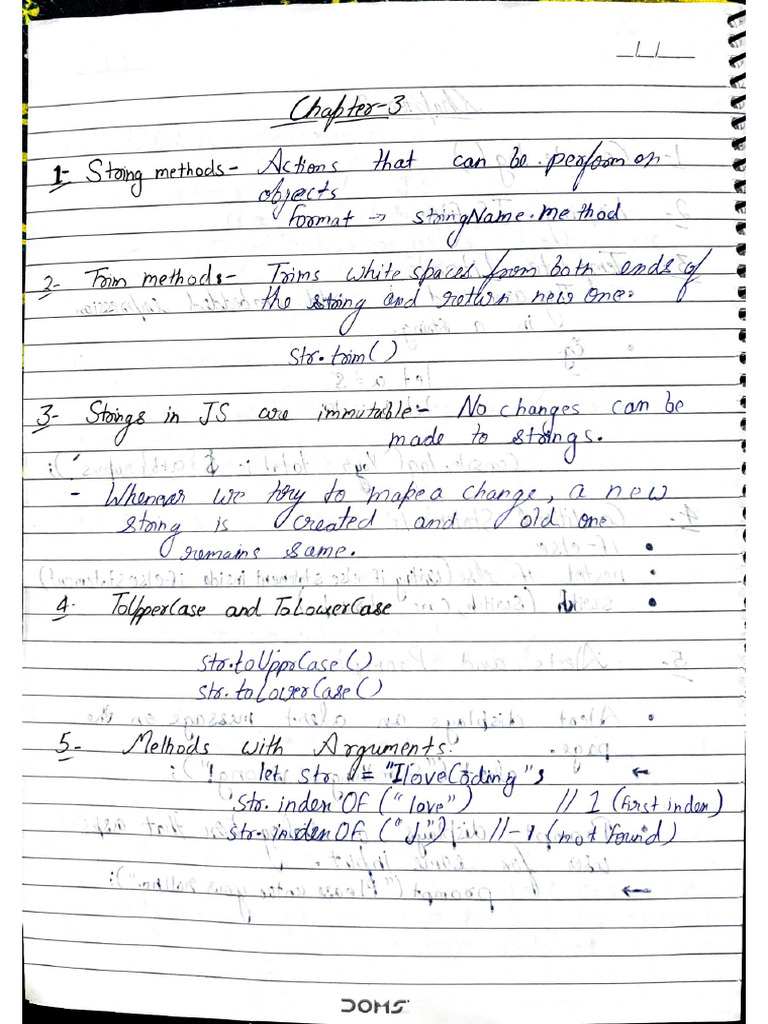 Chapter-3
1- String methods - Actions that can be perform on
objects
format → stringName.method
2- Trim methods - Trims white spaces from both ends of
the string and return new one.
str.trim()
3- Strings in JS are immutable:- No changes can be
made to strings.
- Whenever we try to make a change, a new
string is created and old one
remains same.
4- ToUpperCase and ToLowerCase
str.toUpprCase()
str.toLowerCase()
5- Methods with Arguments.
let str = "IloveCoding";
str.indexOf("love") // 1 (first index)
str.indexOf("J") //-1 (not found)
DOMS